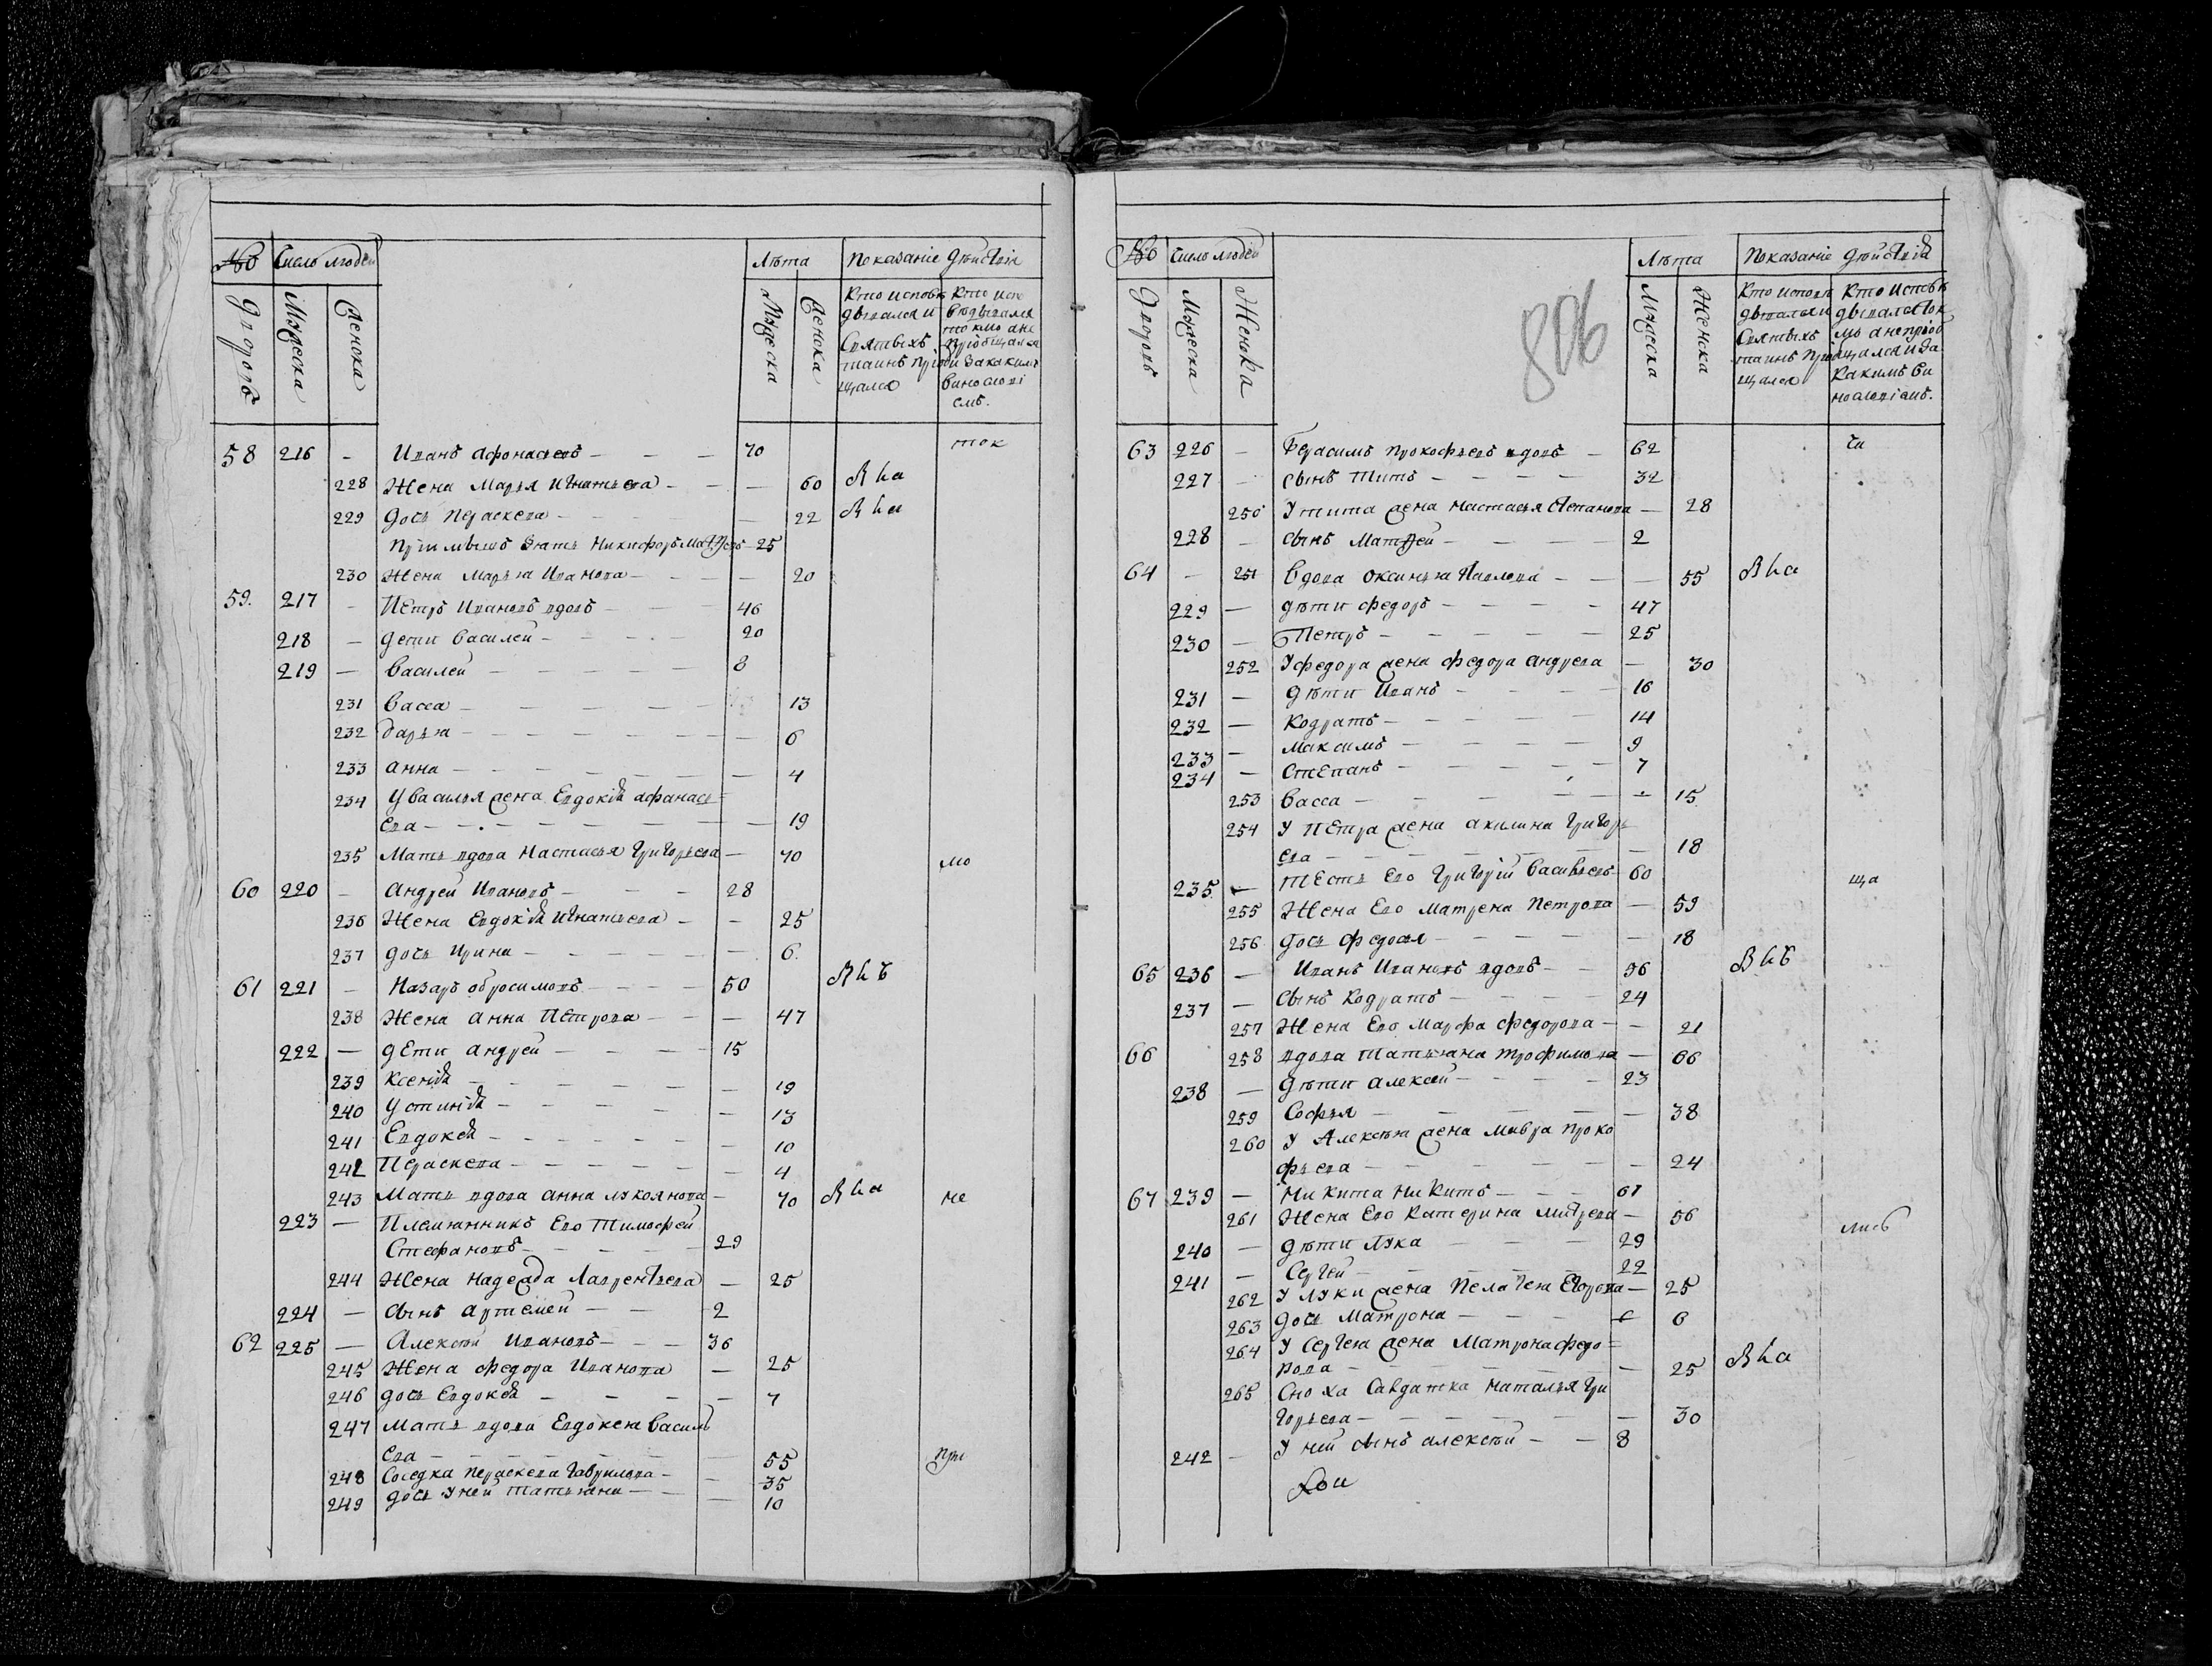 № Число людей Лѣта Показаніе действія
дворовъ Мужеска Женска Мужеска Женска
Кто исповѣ Кто испо
дывался и вѣдывался
Святыхъ токмо а не
таинъ пріоб пріобщался
щался и за какимъ
винословіемъ.
58 216 - Иванъ Афонасьевъ - - - 70 ток
228 Жена Марья Игнатьева - - - 60
229 дочь Параскева - - - 22
Приимышъ Зять Никифоръ Матѳѣевъ - 25
230 Жена Марья Иванова - - - 20
59. 217 - Петръ Ивановъ вдовъ - - - 46
218 - дети Василей - - - 20
219 - Василей - - - 8
231 Васса - - - 13
232 Дарья - - - 6
233 Анна - - - 4
234 У Василья жена Евдокія Афанась=
ева - - - 19
235 Мать вдова Настасья Григорьева - 70 мо
60 220 - Андрей Ивановъ - - - 28
236 Жена Евдокія Игнатьева - - 25
237 дочь Ирина - - - 6.
61 221 - Назаръ Обросимовъ - - - 50
238 Жена Анна Петрова - - - 47
222 - дети Андрей - - - 15
239 Ксенія - - - 19
240 Устинія - - - 13
241 Евдокія - - - 10
242 Параскева - - - 4
243 Мать вдова Анна Лукоянова - 70 не
223 - Племянникъ Его Тимофей
Стефановъ - - - 29
244 Жена Надежда Лаврентьева - 25
224 - сынъ Артемей - - - 2
62 225 - Алексѣй Ивановъ - - - 36
245 Жена Федора Иванова - 25
246 дочь Евдокія - - - 7
247 Мать вдова Евдокея Василь
ева - - - 55 при
248 Соседка Параскева Гаврилова - - 35
249 дочь У ней Татьяна - - - 10
№ Число людей Лѣта Показаніе действія
806
дворовъ Мужеска Женска Мужеска Женска
Кто исповѣ Кто исповѣ
дывался и дывался ток
Святыхъ мо а не пріоб
таинъ пріоб щался и за
щался какимъ ви
нословіемъ.
63 226 - Герасимъ Прокофьевъ вдовъ - 62
227 - сынъ Титъ - - - 32
250 У Тита жена Настасья Степанова - 28
228 - сынъ Матѳей - - - 2
64 - 251 Вдова Оксинья Павлова - - - 55
229 - дѣти Федоръ - - - 47
230 - Петръ - - - 25
252 У Федора жена Федора Андрева - 30
231 - дѣти Иванъ - - - 16
232 - Кодратъ - - - 14
233 - Максимъ - - - 9
234 - Степанъ - - - 7
253 Васса - - - 15
254 У Петра жена Акилина Григорь
ева - - - 18
235. - Тесть Его Григорій Васильевъ 60 ща
255 Жена Его Матрена Петрова - 59
256 дочь Федосья - - - 18
65 236 - Иванъ Ивановъ вдовъ - - 56
237 - сынъ Кодратъ - - - 24
257 Жена Его Марфа Федорова - - 21
66 258 вдова Татьяна Трофимова - 66
238 - дѣти Алексѣй - - - 23
259 Софья - - - 38
260 У Алексѣя жена Мавра Проко
фьева - - - 24
67 239 - Никита Никитъ - - - 61
261 Жена Его Катерина - 56 лись
240 - дѣти Лука - - - 29
241 - Сергей - - - 22
262 У Луки жена Пелагея Егорова - 25
263 дочь Матрона - - - 6
264 У Сергея жена Матрона Федо=
рова - - - 25
265 Сноха Салдатка Наталья Гри
горьева - - - 30
242 - У ней сынъ Алексѣй - - 8